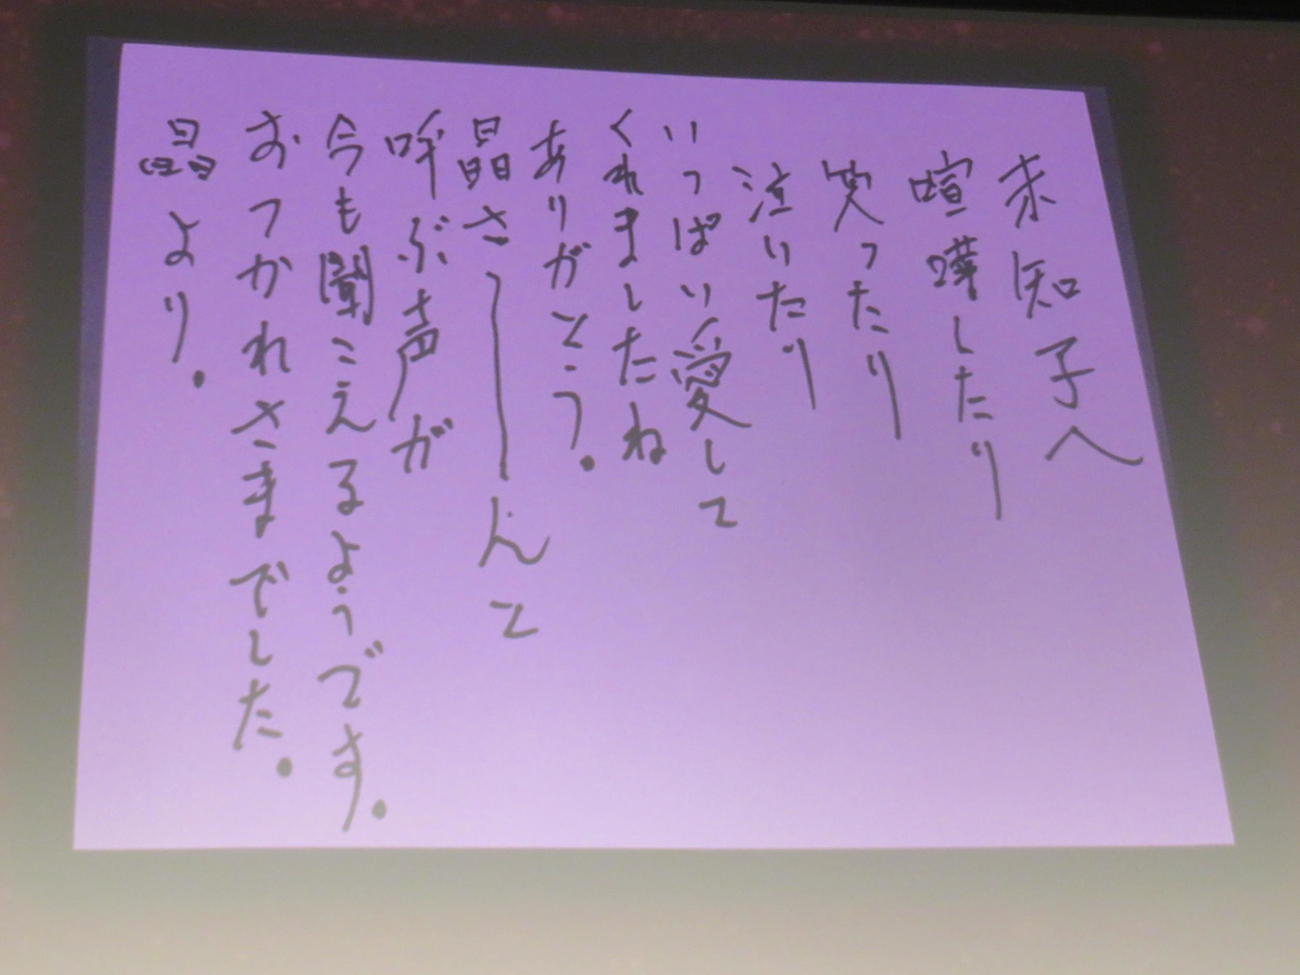 未知子へ
喧嘩したり
笑ったり
泣いたり
いっぱい愛して
くれましたね
ありがとう。
晶さーーんと
呼ぶ声が
今も聞こえるようです。
おつかれさまでした。
晶より。